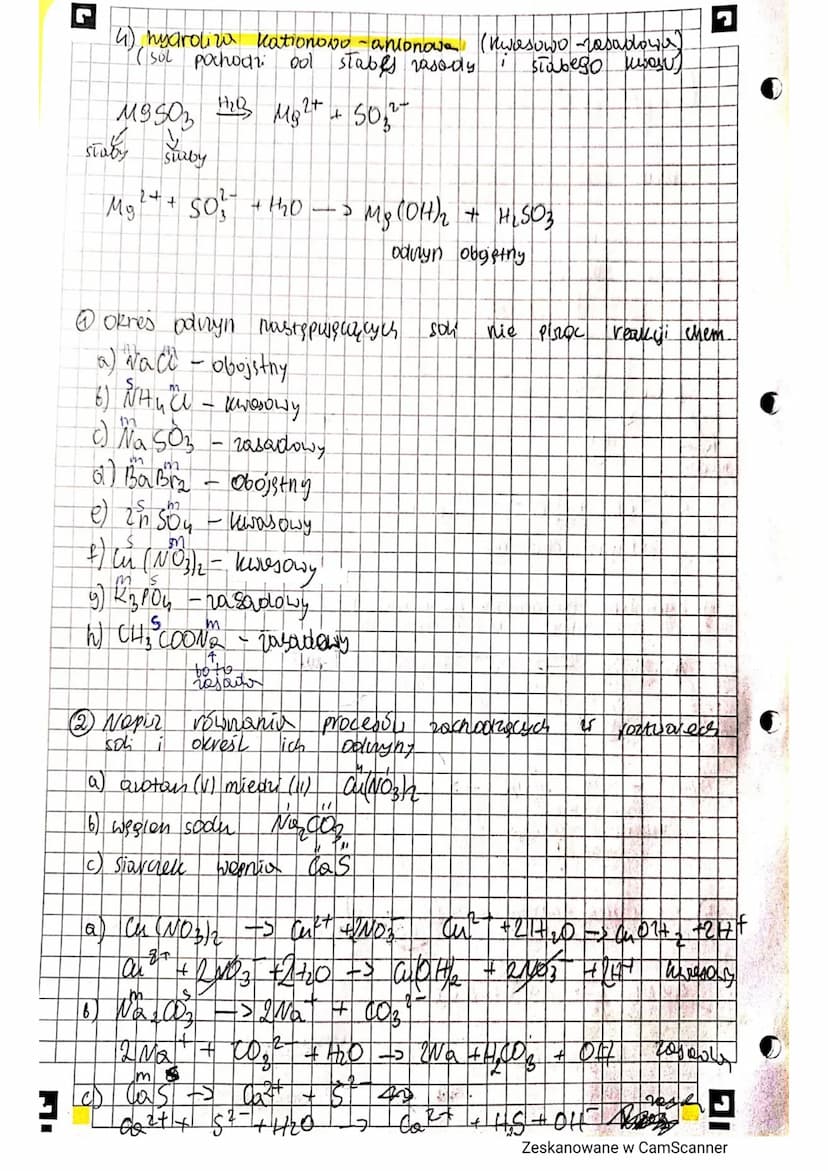 4) hydroliza kationowo-anionowa (kwasowo-zasadowa)
(sól pochodzi od słabej zasady i słabego kwasu)
MgSO₃ H₂O → Mg²⁺ + SO₃²⁻
słaby słaby
Mg²⁺ + SO₃²⁻ + H₂O → Mg(OH)₂ + H₂SO₃
odczyn obojętny
① Określ odczyn następujących soli nie pisząc reakcji chem.
m m
a) NaCl – obojętny
s m
b) NH₄Cl – kwasowy
m s
c) NaSO₃ – zasadowy
m m
d) BaBr₂ – obojętny
s m
e) ZnSO₄ – kwasowy
s m
f) Cu(NO₃)₂ – kwasowy
m s
g) K₃PO₄ – zasadowy
s m
h) CH₃COONa – zasadowy
↑
bo to
zasada
② Napisz równania procesów zachodzących w roztworach
soli i określ ich odczyny
a) azotan (V) miedzi (II) Cu(NO₃)₂
b) węglan sodu Na₂CO₃
c) siarczek wapnia CaS
a) Cu(NO₃)₂ → Cu²⁺ + 2NO₃⁻ Cu²⁺ + 2H₂O → CuOH₂ + 2H⁺
Cu²⁺ + 2NO₃⁻ + 2H₂O → Cu(OH)₂ + 2NO₃⁻ + 2H⁺ kwasowy
m s
b) Na₂CO₃ → 2Na⁺ + CO₃²⁻
2Na⁺ + CO₃²⁻ + H₂O → 2Na + H₂CO₃ + OH zasadowy
m s
c) CaS → Ca²⁺ + S²⁻
Ca²⁺ + S²⁻ + H₂O → Ca²⁺ + H₂S + OH⁻ zasad
Zeskanowane w CamScanner